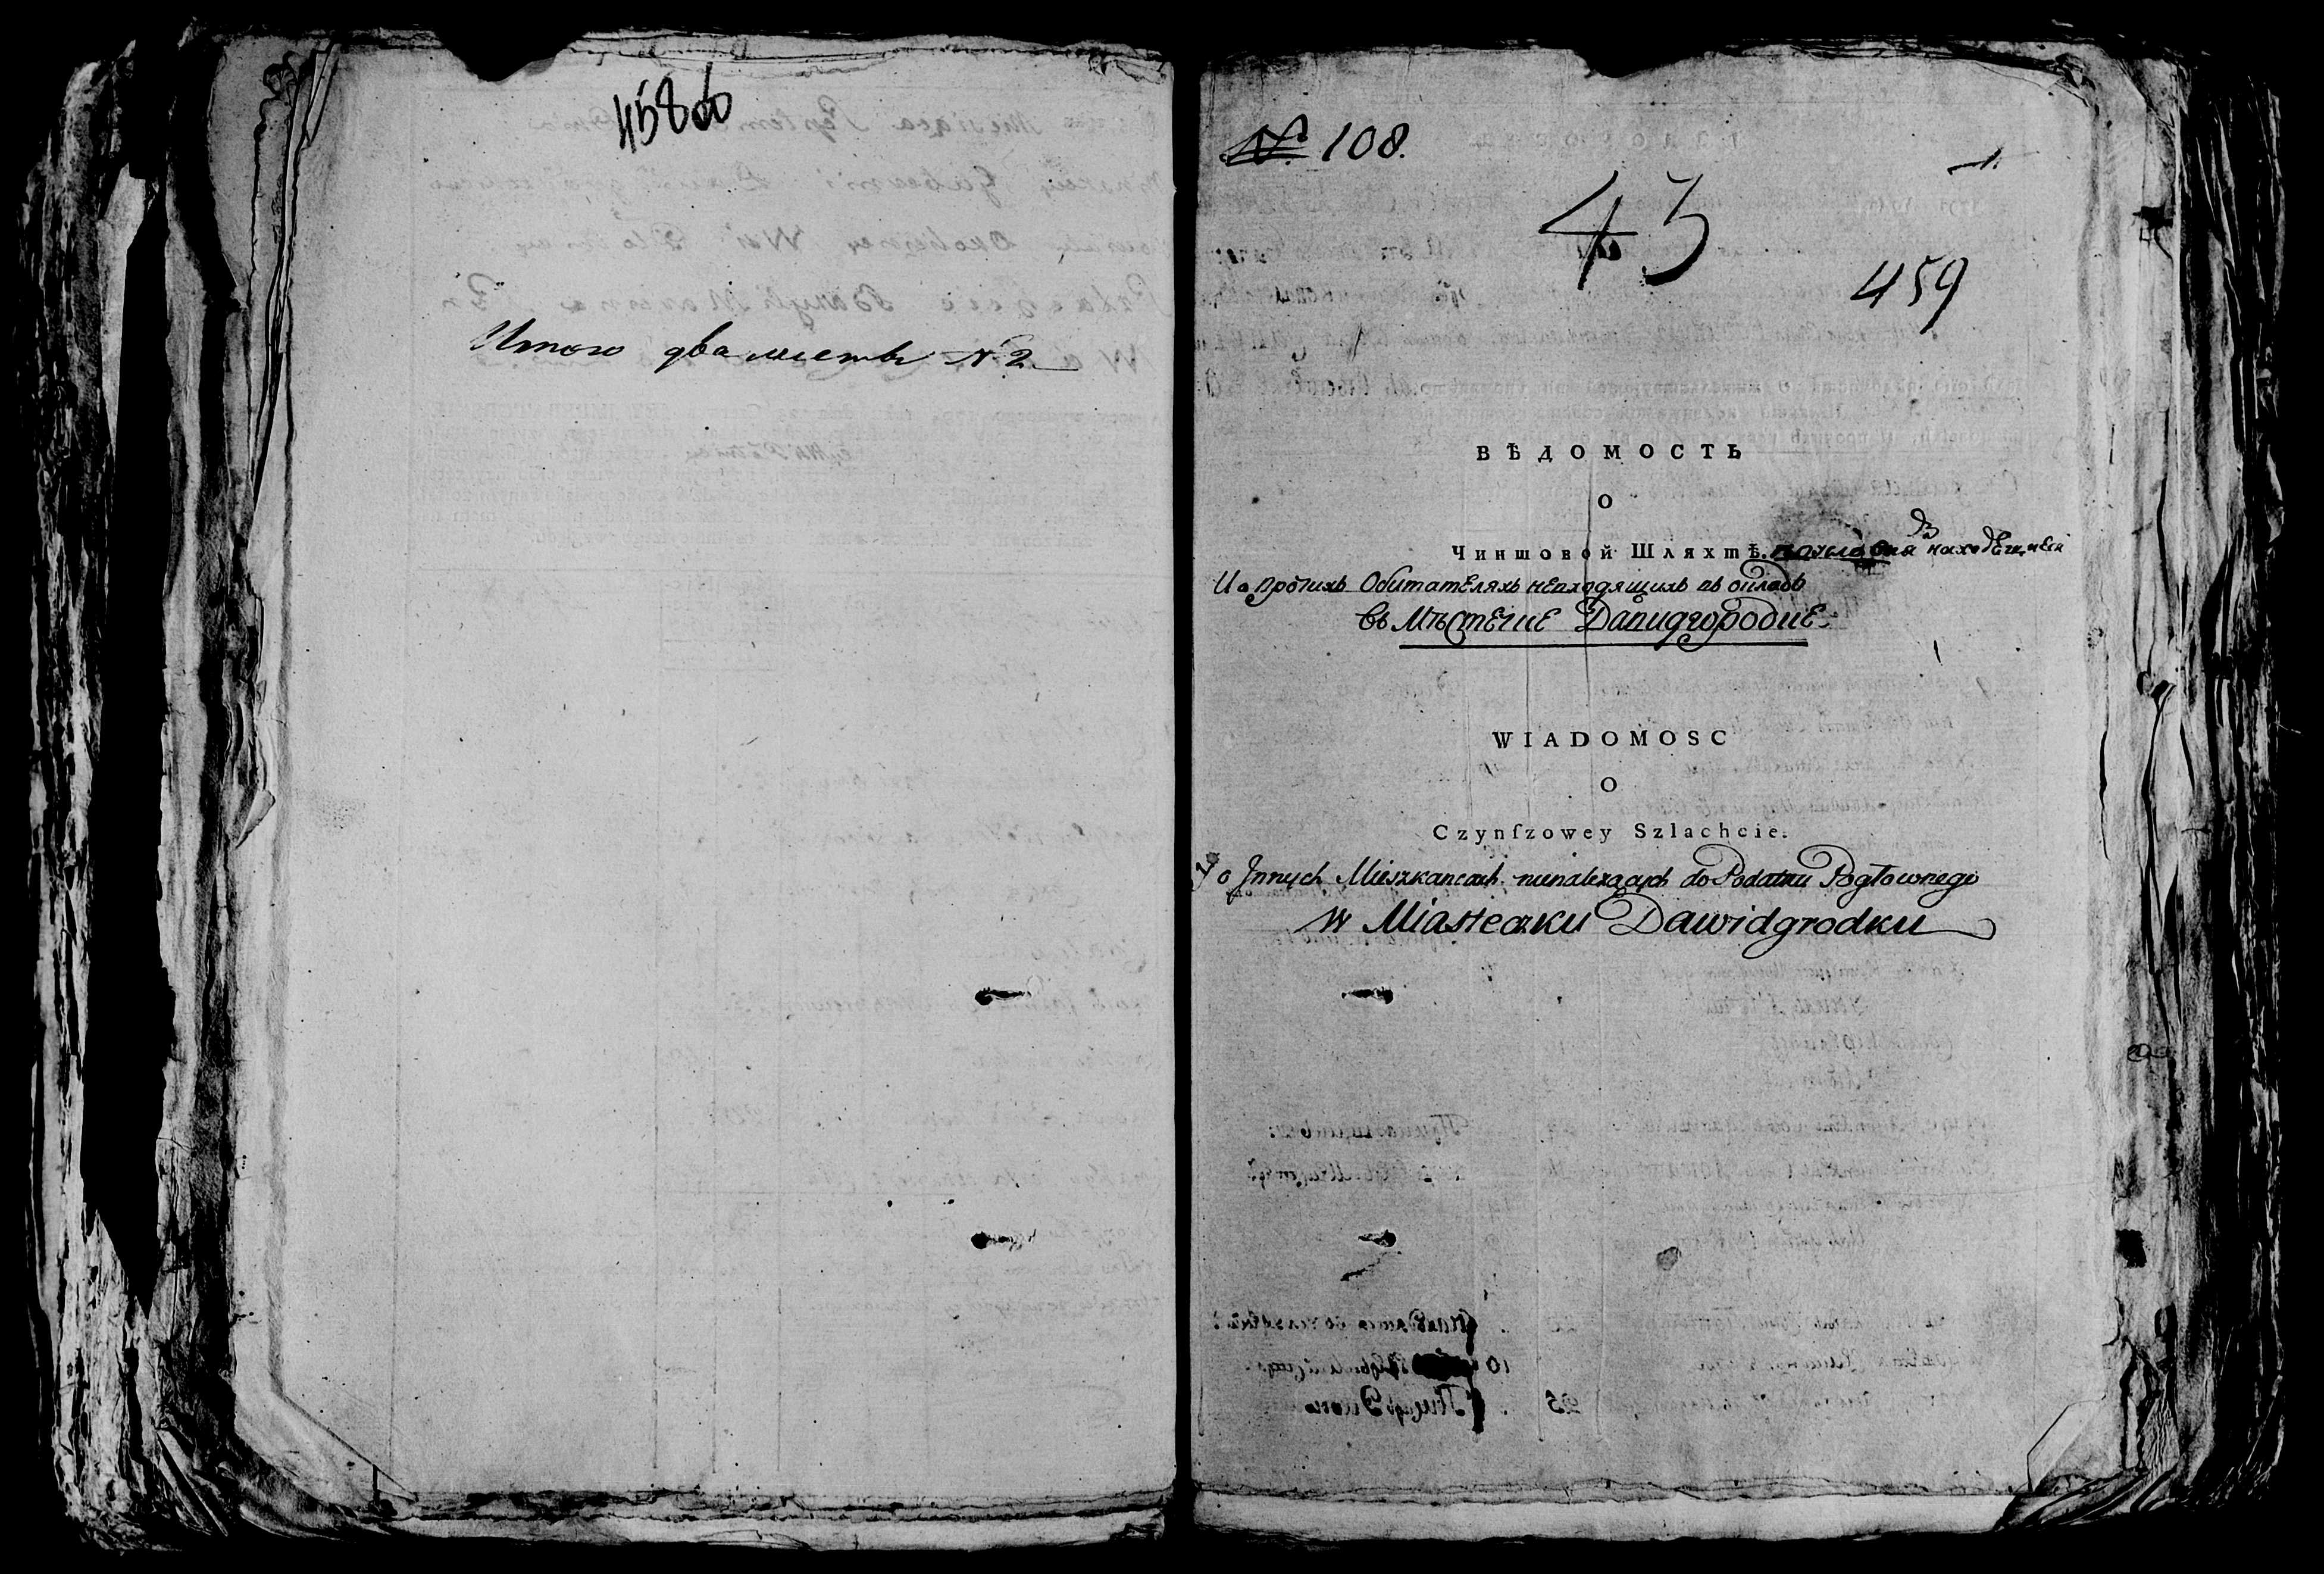 458 об
Итого два листы № 2
№ 108.
1.
43
459
ВѢДОМОСТЬ
О
Чиншовой Шляхтѣ. находящейся
И о протчихъ Обитателяхъ невходящихъ въ окладъ
въ Мѣстечке Давидгородке
WIADOMOSC
O
Czynſzowey Szlachcie.
Y o Innych Mieszkancach nienalezących do Podatku Pogłownego
w Miasteczku Dawidgrodku